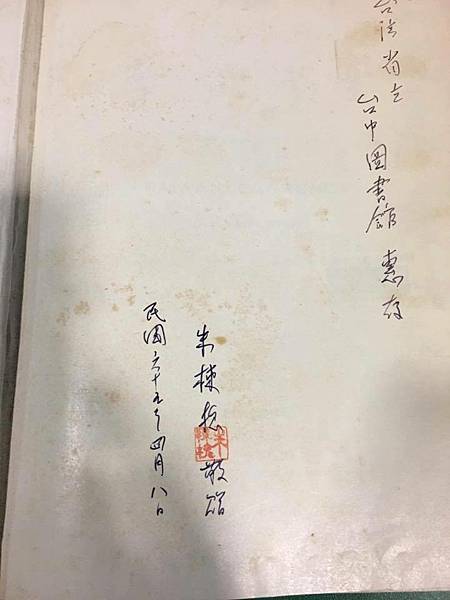 台湾省立
台中圖書館 惠存
朱棟 敬贈
民國六十五年四月八日